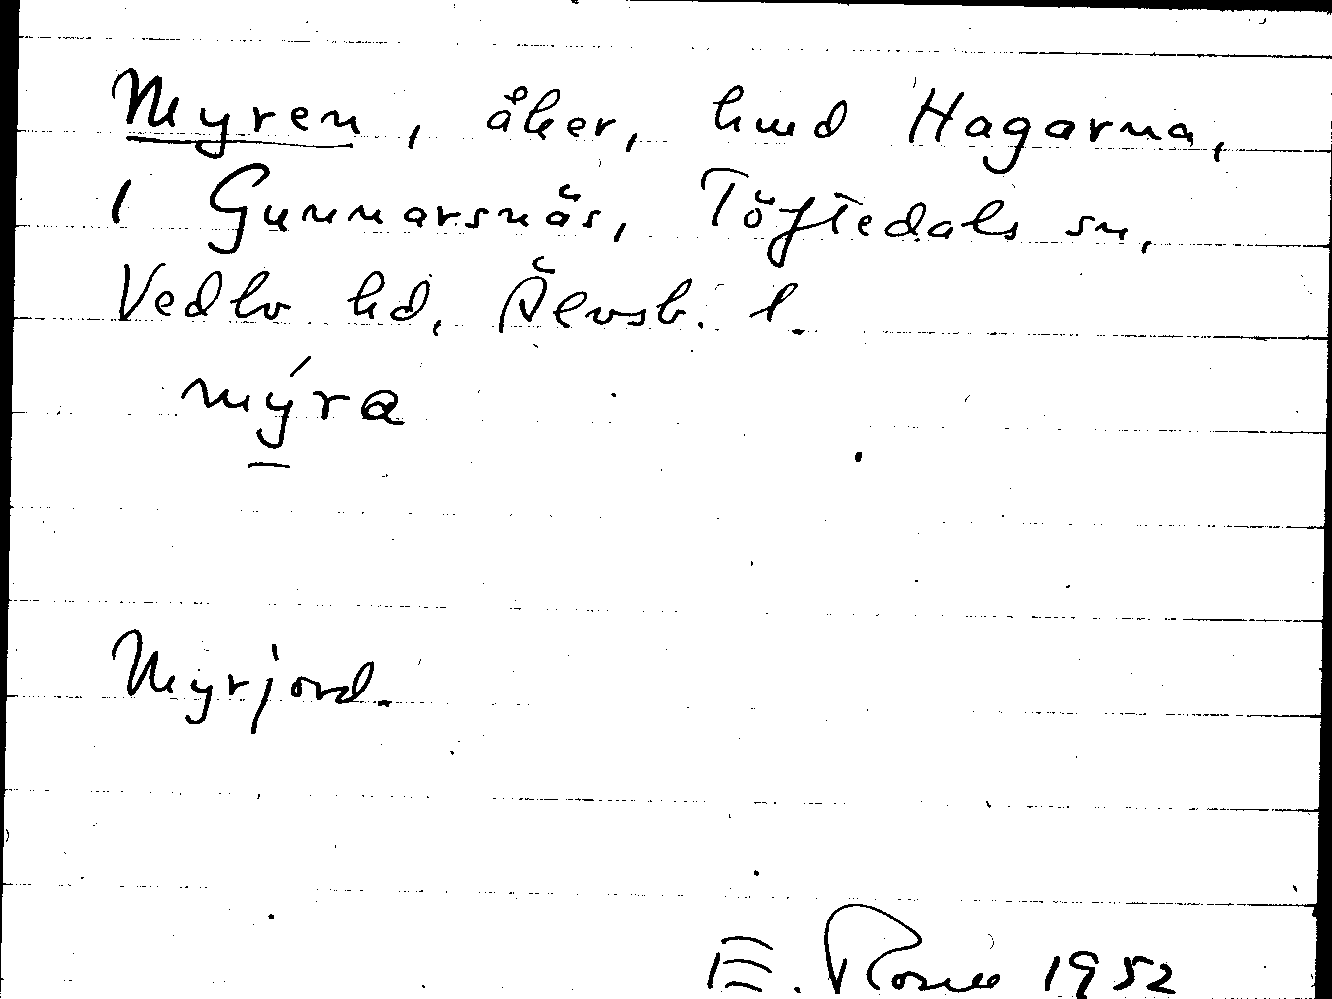 Myren, åker, hmd Hagarna,
1 Gunnarsnäs, Töftedals sn,
Vedbo hd, Älvsb. l.
mýra
Myrjord.
E. 1952